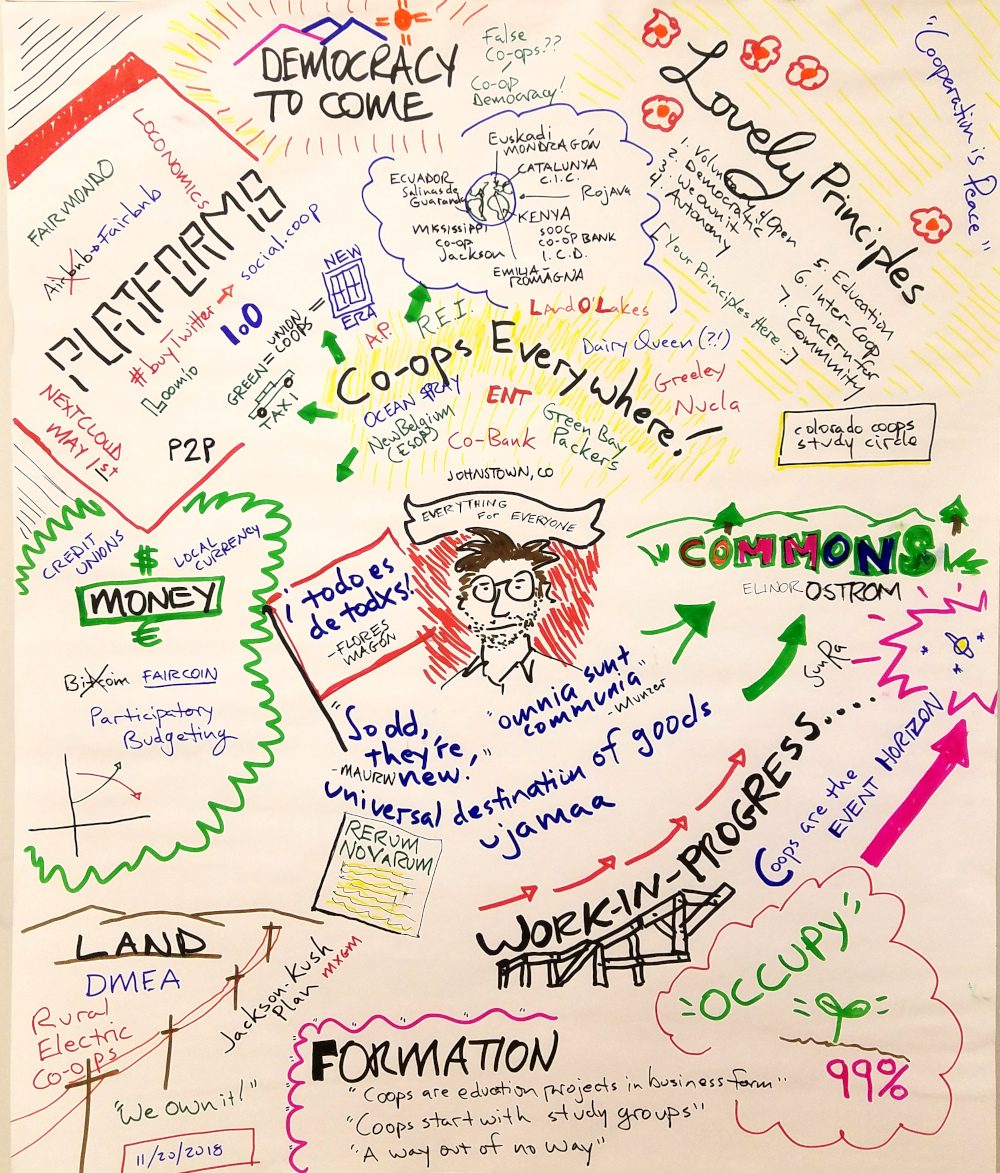 DEMOCRACY
TO COME
False
Co-ops??
Co-op
Democracy!
Lovely Principles
1. Voluntary & Open
2. Democratic
3. We own it
4. Autonomy
[Your Principles Here...]
5. Education
6. Inter-Coop
7. Concern for
Community
"Cooperation is
Peace"
colorado coops
study circle
Euskadi
MONDRAGÓN
CATALUNYA
C.I.C.
Rojava
KENYA
500C
CO-OP BANK
I.C.D.
EMILIA
ROMAGNA
ECUADOR
Salinas de
Guaranda
MISSISSIPPI
CO-OP
Jackson
LOCONOMICS
FAIRMONDO
Airbnb Fairbnb
PLATFORMS
social.coop
#buyTwitter
1.0
Loomio
NEXTCLOUD
MAY 1st
P2P
GREEN = UNION
TAXI COOPS =
NEW
ERA
Co-ops Everywhere!
A.P.
R.E.I.
Land O'Lakes
Dairy Queen (?!)
Greeley
Nucla
OCEAN SPRAY
ENT
New Belgium
(ESOP)
Co-Bank
Green Bay
Packers
JOHNSTOWN, CO
EVERYTHING
FOR EVERYONE
CREDIT
UNIONS
$
LOCAL
CURRENCY
MONEY
€
FAIRCOIN
Participatory
Budgeting
¡todo es
de todxs!
-FLORES
MAGÓN
COMMONS
ELINOR OSTROM
"So old,
they're,
new."
-MAURIN
"omnia sunt
communia"
-Munzer
universal destination of goods
ujamaa
RERUM
NOVARUM
Sun Ra
WORK-IN-PROGRESS....
Coops are the
EVENT HORIZON
OCCUPY
99%
LAND
DMEA
Rural
Electric
Co-ops
"We own it!"
11/20/2018
Jackson-Kush
Plan MXGM
FORMATION
"Coops are eduction projects in business form"
"Coops start with study groups"
"A way out of no way"